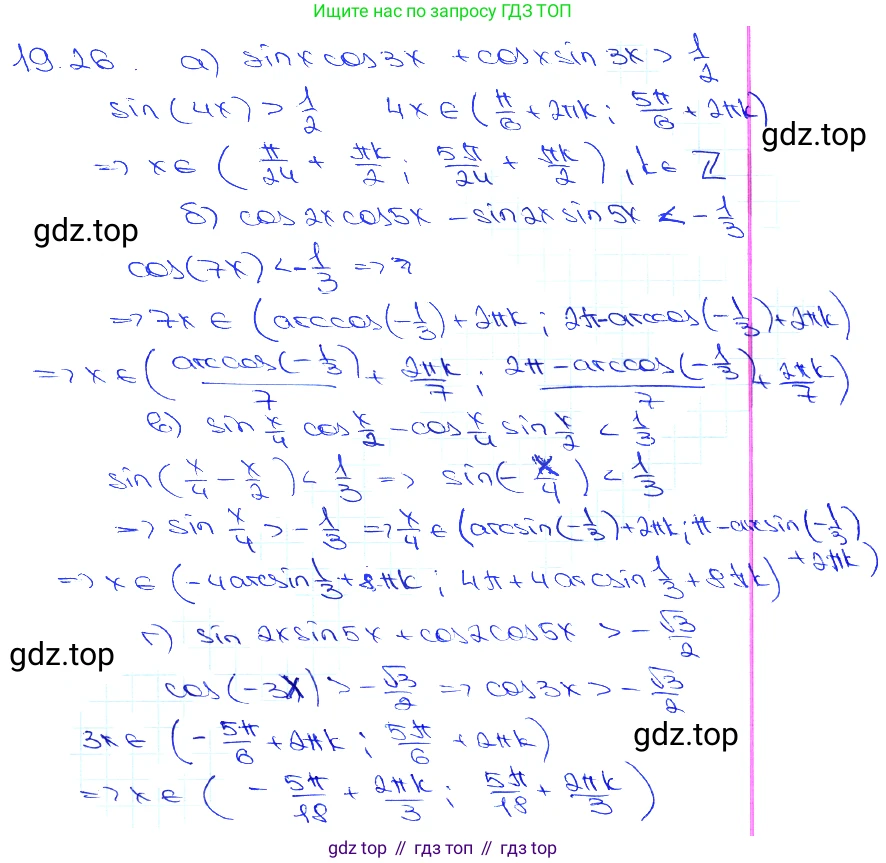 Ищите нас по запросу ГДЗ ТОП
19.26. а) sinx cos3x + cosx sin3x > 1/2
sin(4x) > 1/2 4x ∈ (π/6 + 2πk; 5π/6 + 2πk)
gdz.top
=> x ∈ (π/24 + πk/2; 5π/24 + πk/2), k ∈ Z
б) cos2x cos5x - sin2x sin5x < -1/3
gdz.top
cos(7x) < -1/3 =>
=> 7x ∈ (arccos(-1/3) + 2πk; 2π - arccos(-1/3) + 2πk)
=> x ∈ (arccos(-1/3)/7 + 2πk/7; 2π - arccos(-1/3)/7 + 2πk/7)
в) sin x/4 cos x/2 - cos x/4 sin x/2 < 1/3
sin(x/4 - x/2) < 1/3 => sin(-x/4) < 1/3
=> sin x/4 > -1/3 => x/4 ∈ (arcsin(-1/3) + 2πk; π - arcsin(-1/3)
+ 2πk)
=> x ∈ (-4arcsin 1/3 + 8πk; 4π + 4arcsin 1/3 + 8πk)
г) sin 2x sin5x + cos2cos5x > -√3/2
gdz.top
cos(-3x) > -√3/2 => cos3x > -√3/2
3x ∈ (-5π/6 + 2πk; 5π/6 + 2πk)
gdz.top
=> x ∈ (-5π/18 + 2πk/3; 5π/18 + 2πk/3)
gdz.top // гдз топ // gdz top